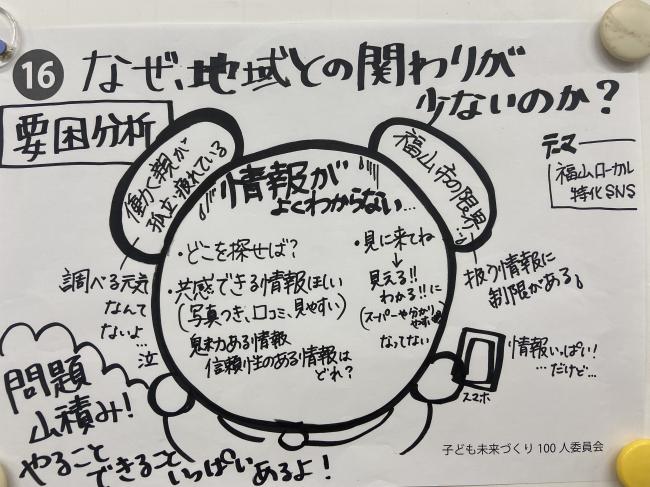 16 なぜ、地域との関わりが
少ないのか？
要因分析
テーマ
福山ローカル
特化SNS
働く親が
孤立、疲れている
福山市の限界…
情報が
よくわからない…
・どこを探せば？
・共感できる情報ほしい
(写真つき、口コミ、見やすい)
魅力ある情報
信頼性のある情報は
どれ？
・見に来てね
↓
見える!!
わかる!!に
(スーパーや分かり
やすい
なってない
調べる元気
なんて
ないよ…
泣
扱う情報に
制限がある。
情報いっぱい!
…だけど…
スマホ
問題
山積み!
やること
できること
いっぱいあるよ!
子ども未来づくり100人委員会